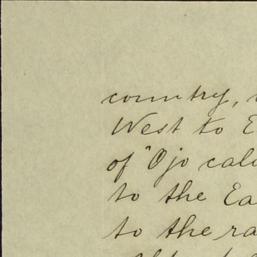 country,
West to E
of "Ojo cali
to the Ea
to the ra